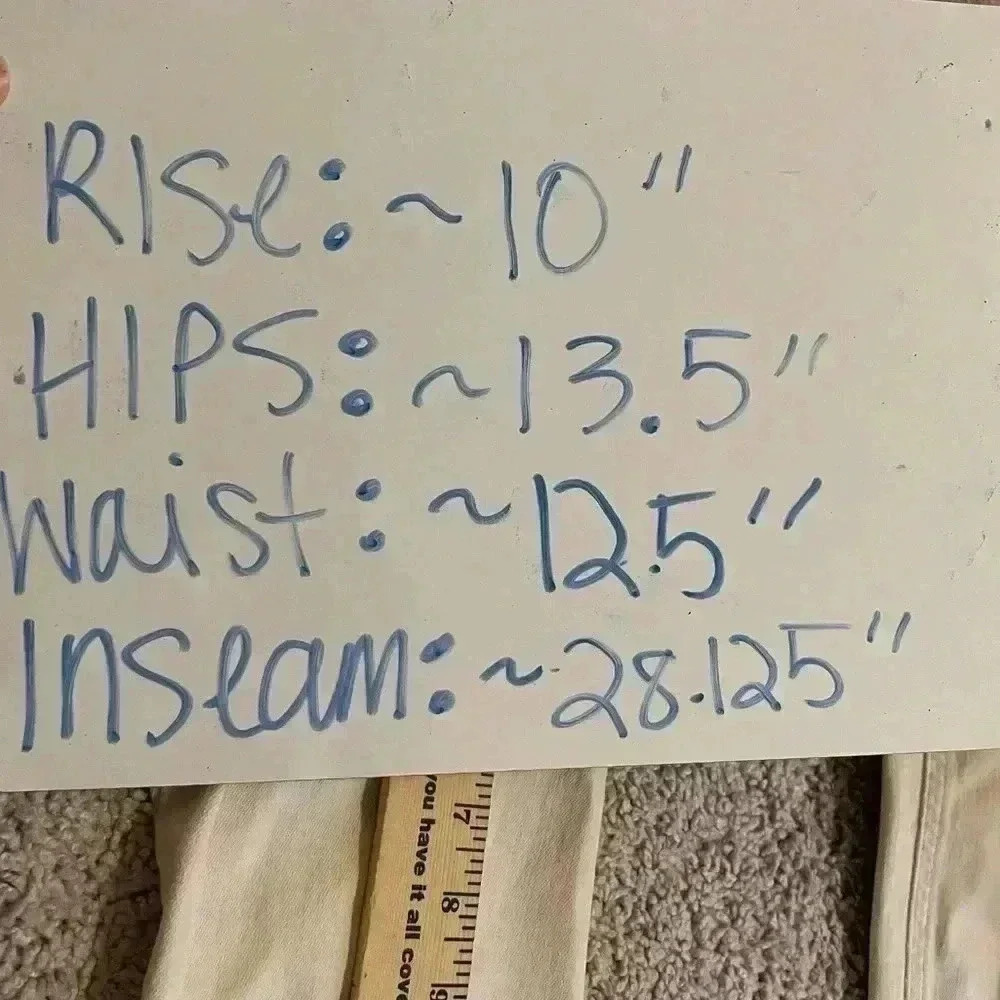 RISe: ~10"
HIPS: ~13.5"
Waist: ~12.5"
Inseam: ~28.125"
7
you have it all cove
8
9